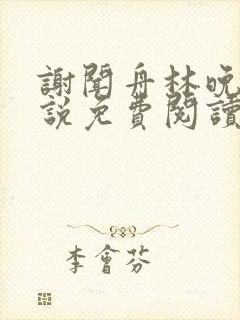 謝聞舟林晚
說免費閱讀
李會芬